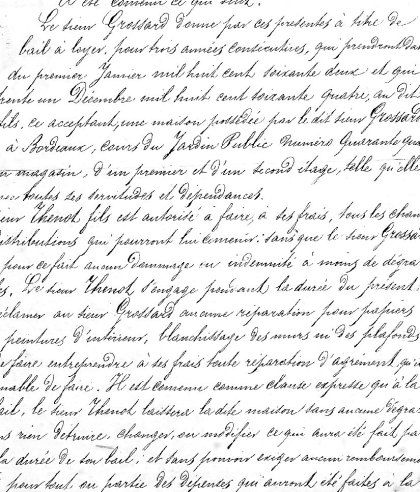 A été convenu ce qui suit.
Le sieur Grossard donne par ces présentes à titre de
bail à loyer, pour trois années consécutives, qui prendront
du premier Janvier mil huit cent soixante deux et qui
trente un Décembre mil huit cent soixante quatre, au dit
fils, ce acceptant, une maison possédée par le dit sieur Grossard
à Bordeaux, cours du Jardin Public numéro Quarante
magasin, d'un premier et d'un second étage, telle qu'elle
toutes ses servitudes et dépendances.
Thenot fils est autorisé à faire, à ses frais, tous les
distributions qui pourront lui convenir: sans que le sieur
pour ce fait aucun dommage ou indemnité à moins de
Le sieur Thenot s'engage pendant la durée du présent
réclamer au sieur Grossard aucune réparation pour papiers
peintures d'intérieur, blanchissage des murs ni des plafonds
faire entreprendre à ses frais toute réparation d'agrément
de faire. Il est convenu comme clause expresse qu'à la
bail, le sieur Thenot laissera la dite maison sans aucune
rien détruire, changer, ou modifier ce qui aura été fait
la durée de son bail; et sans pouvoir exiger aucun remboursement
pour tout ou partie des dépenses qui auront été faites à la